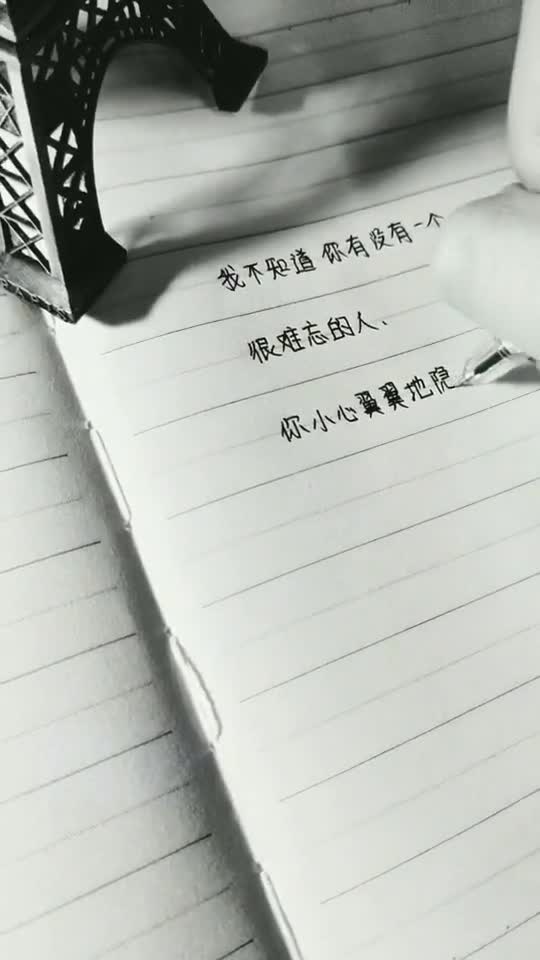 我不知道你有没有一个
很难忘的人、
你小心翼翼地隐